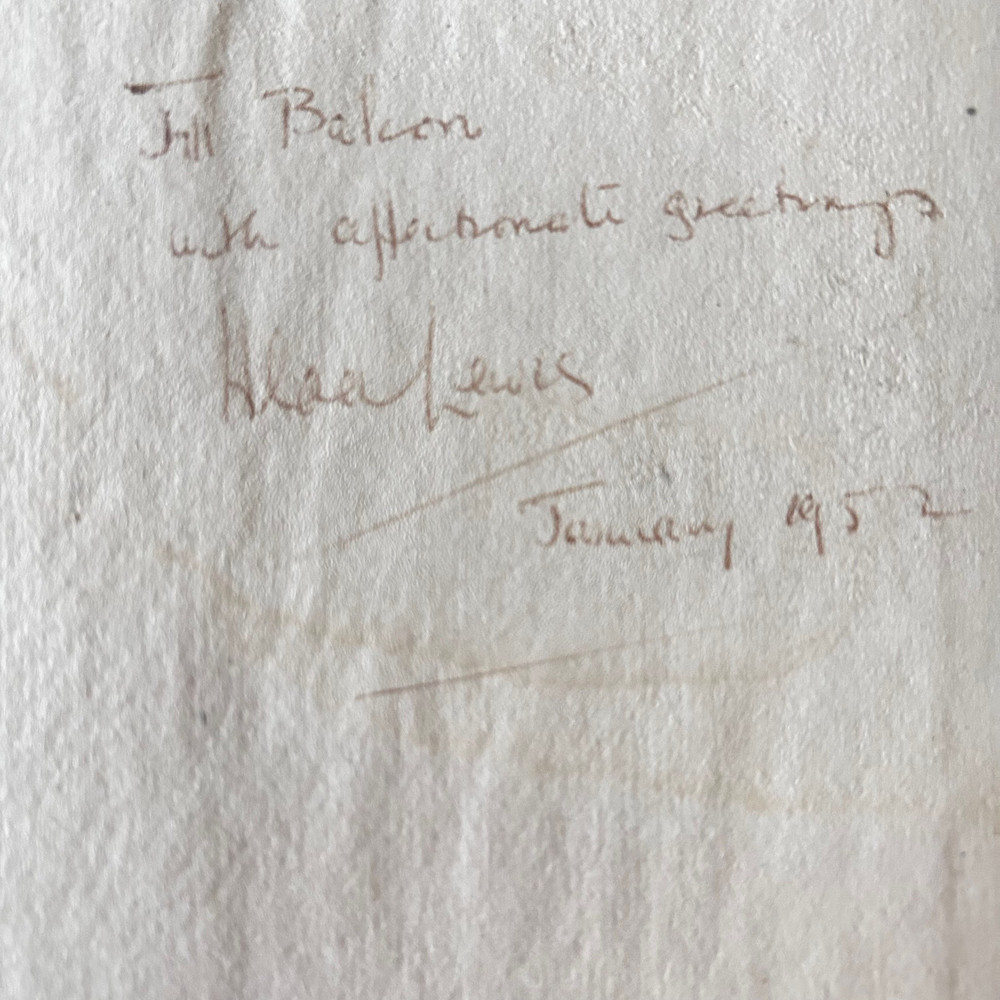 Jill Balcon
with affectionate greetings
Lewis
January 1952